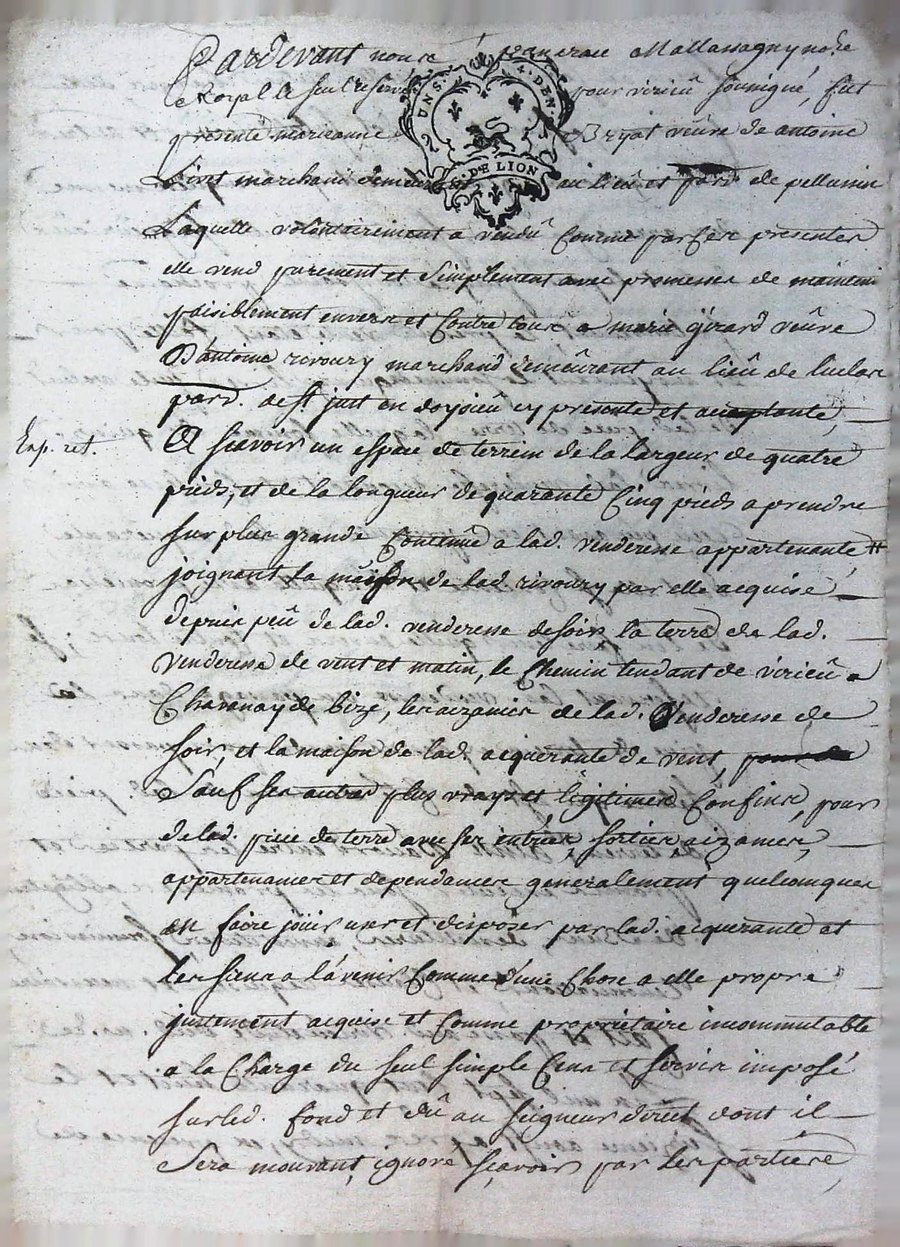 Pardevant nous pancrace Mallassagny no.re
Royal le seul reservé pour virieû soussigné, fut
presente marianne Bryat veûve de antoine
marchand demeurant au lieû et parr. de pellussin
UN S. 4. DEN.
G. DE LION
Laquelle volontairement a vendû comme par ses presentes
elle vend purement et simplement avec promesses de maintenir
paisiblement envers et contre tous a marie girard veûve
D'antoine rivoury marchand demeûrant au lieû de
parr. de st. just en doyzieû cy presente et acceptante,
Exp. ret.
A scavoir un espace de terrein de la largeur de quatre
pieds, et de la longueur de quarante cinq pieds a prendre
sur plus grande contenûe a lad. venderesse appartenante
joignant la maison de lad. rivoury par elle acquise
depuis peû de lad. venderesse de soir la terre de lad.
venderesse de vent et matin, le chemin tendant de virieû a
Chavanay de bize, les aizances de lad. venderesse de
soir, et la maison de lad. acquerante de vent,
Sauf ses autres plus vrays et legitimes confins, pour
de lad. piece de terre avec ses entrées, sorties, aizances,
appartenances et dependances generalement quelconques
en faire jouir user et disposer par lad. acquerante et
les siens a l'avenir comme d'une chose a elle propre
justement acquise et comme propriétaire incommutable
a la charge du seul simple cens et servis imposé
sur led. fond et dû au seigneur direct dont il
Sera mouvant, ignoré sçavoir par les parties,